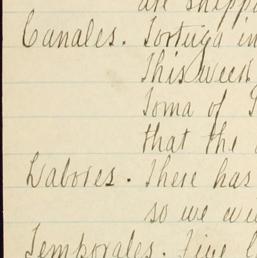 are shipp
Canales. Tortuga in
This week
Toma of
that the
Labores. There has
so we we
Temporales. Five